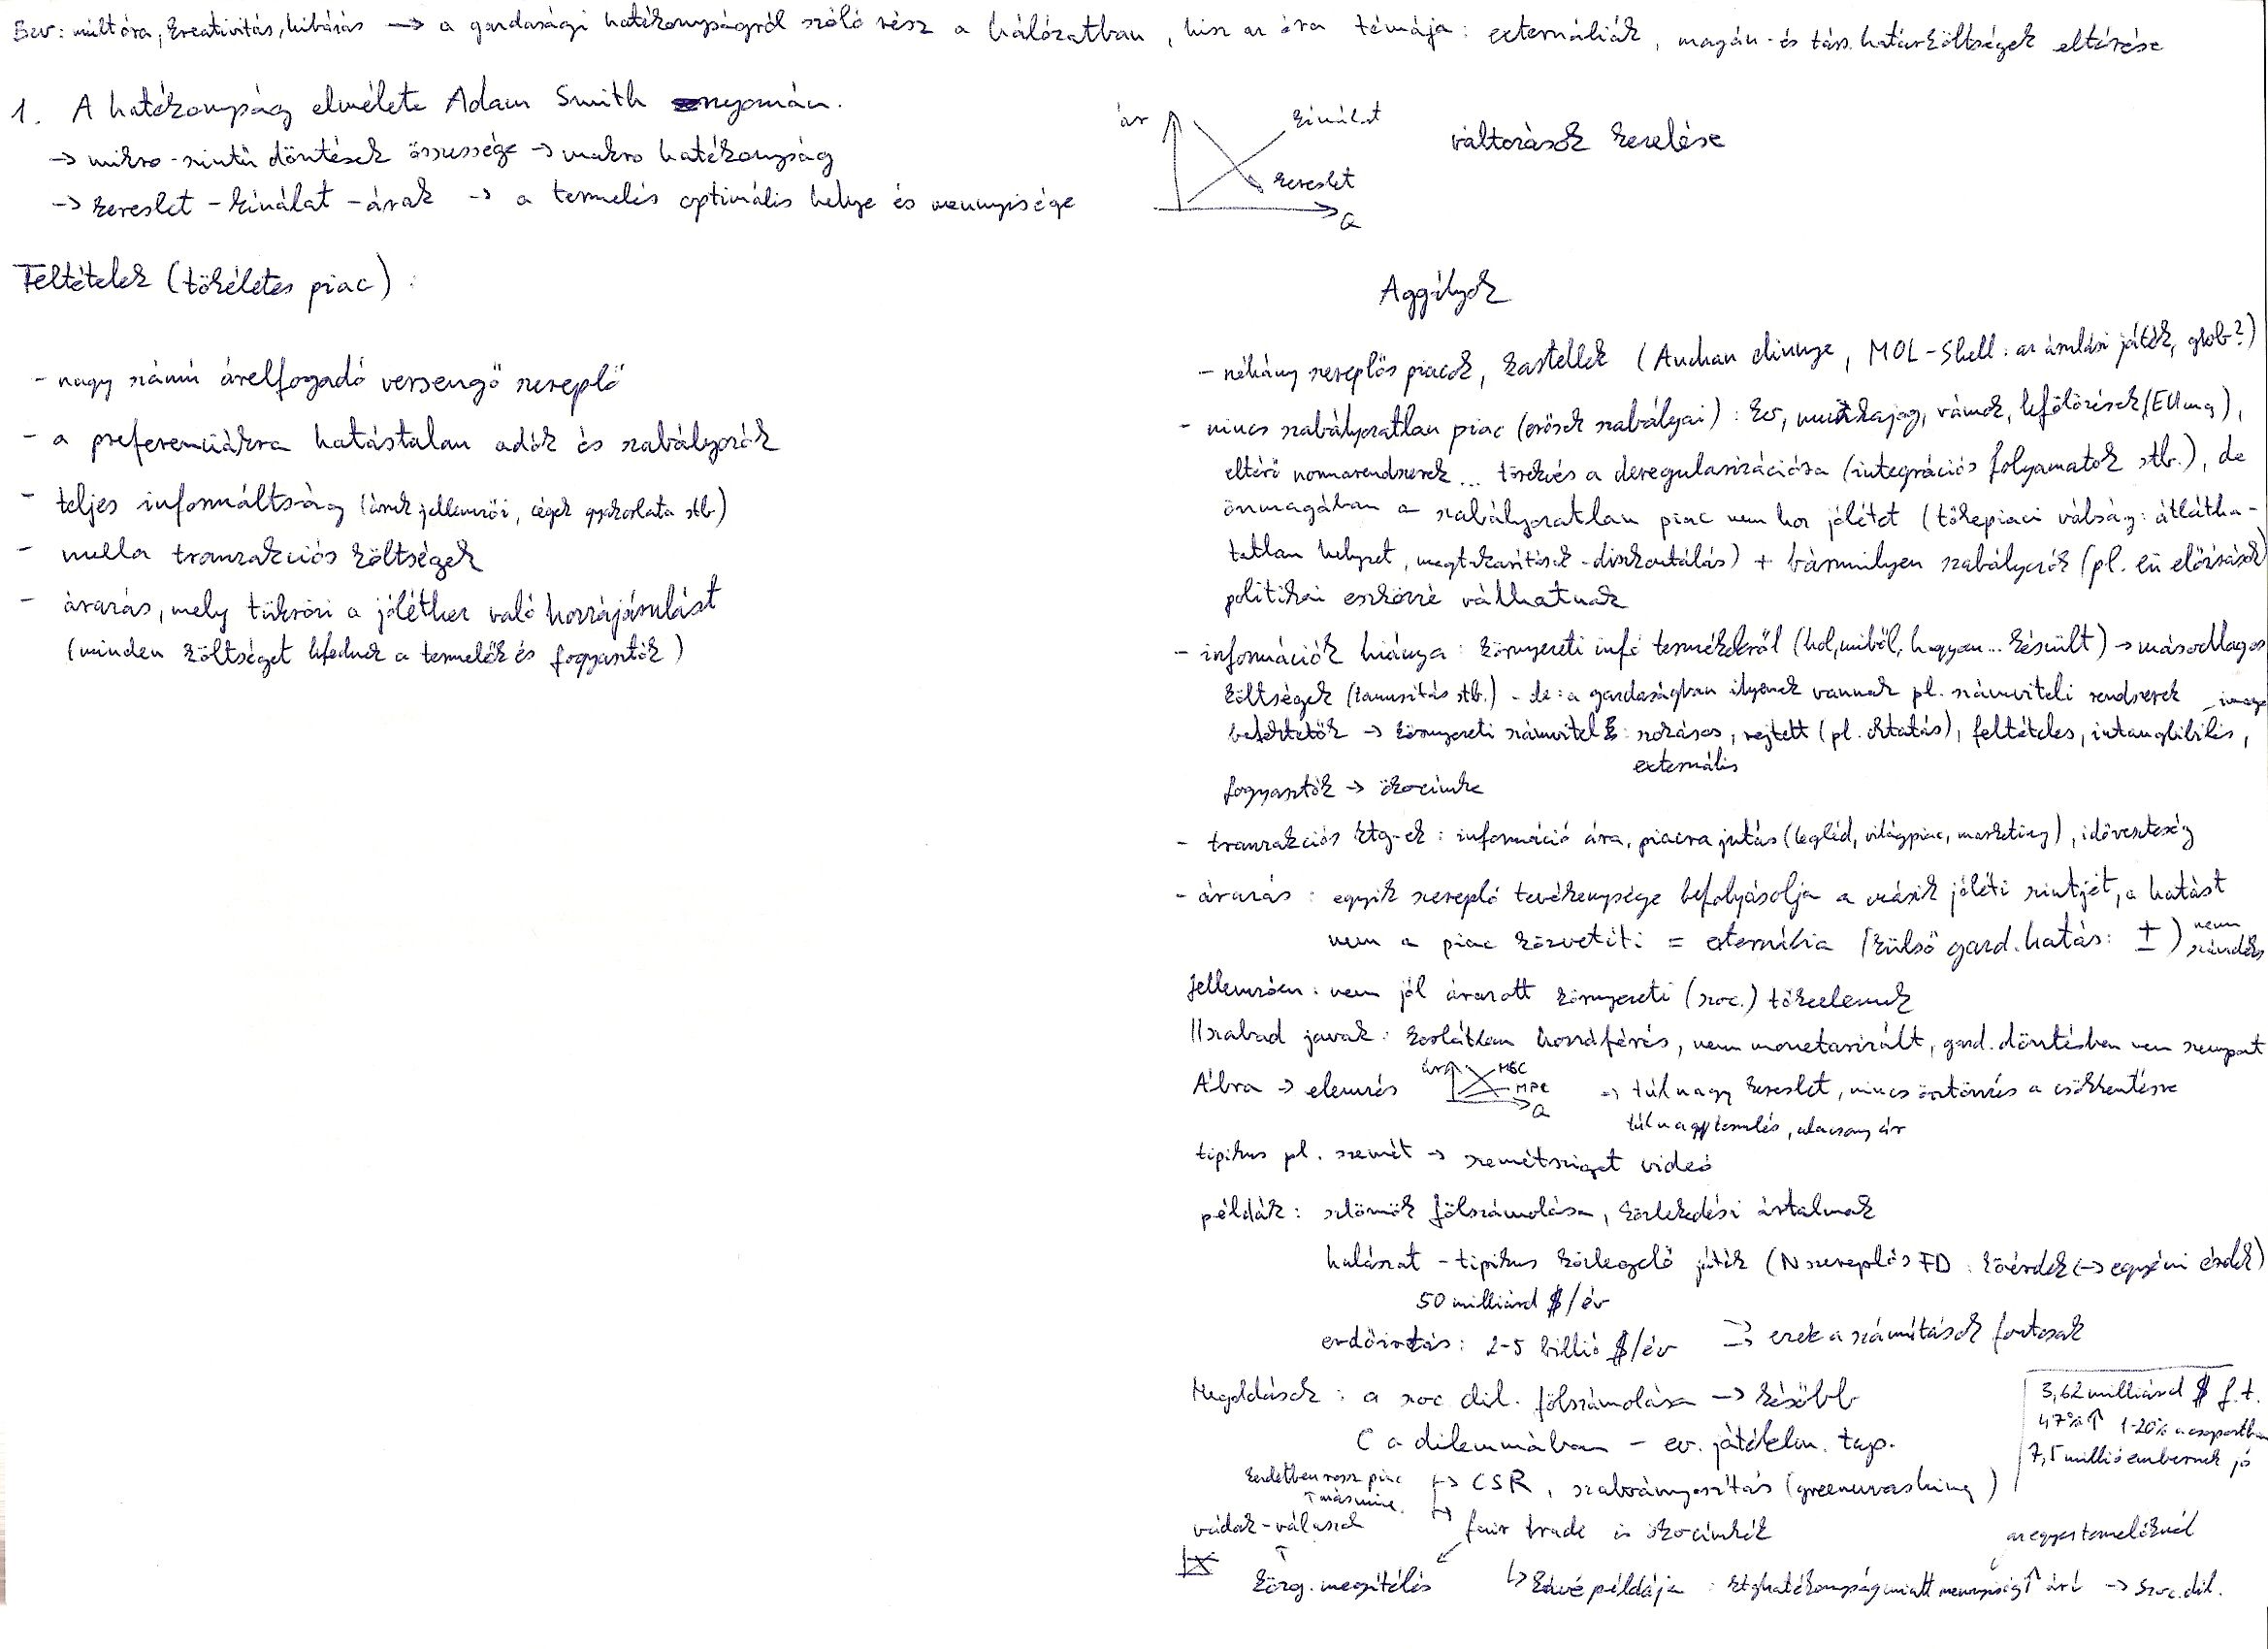 Bev: múlt óra, kreativitás, hibázás → a gazdasági hatékonyságról szóló rész a hálózatban, hisz az óra témája: externáliák, magán- és társ. határköltségek eltérése
1. A hatékonyság elmélete Adam Smith nyomán.
→ mikro-szintű döntések összessége → makro hatékonyság
→ kereslet – kínálat – árak → a termelés optimális helye és mennyisége
ár
kínálat
kereslet
Q
változások kezelése
Feltételek (tökéletes piac):
- nagy számú árelfogadó versengő szereplő
- a preferenciákra hatástalan adók és szabályozók
- teljes informáltság (áruk jellemzői, cégek gyakorlata stb)
- nulla tranzakciós költségek
- árazás, mely tükrözi a jóléthez való hozzájárulást
(minden költséget lefednek a termelők és fogyasztók)
Aggályok
- néhány szereplős piacok, kartellek (Auchan dinnye, MOL-Shell: az árulási játék, glob?)
- nincs szabályozatlan piac (erősek szabályai): ker, munkajog, vámok, lefölözések (EU mg),
eltérő normarendszerek... törekvés a deregularizációra (integrációs folyamatok stb.), de
önmagában a szabályozatlan piac nem hoz jólétet (tőkepiaci válság: átlátha-
tatlan helyzet, megtakarítások - diszkontálás) + bármilyen szabályozók (pl. eü előírások)
politikai eszközzé válhatnak
- információk hiánya: környezeti infó termékekről (hol, miből, hogyan... készült) → másodlagos
költségek (tanusítás stb.) - de: a gazdaságban ilyenek vannak pl. számviteli rendszerek
befektetők → környezeti számvitel: szokásos, rejtett (pl. oktatás), feltételes, intangibilis, image
externális
fogyasztók → ökocímke
- tranzakciós ktg-ek: információ ára, piacra jutás (cegléd, világpiac, marketing), időveszteség
- árazás: egyik szereplő tevékenysége befolyásolja a másik jóléti szintjét, a hatást
nem a piac közvetíti = externália (külső gazd. hatás: ±) nem szándékos
Jellemzően: nem jól árazott környezeti (szoc.) tőkeelemek
||szabad javak: korlátlan hozzáférés, nem monetarizált, gazd. döntésben nem szempont
Ábra → elemzés
ár
MSC
MPC
Q
→ túl nagy kereslet, nincs ösztönzés a csökkentésre
túl nagy termelés, alacsony ár
tipikus pl. szemét → szemétsziget videó
példák: fölszámolása, közlekedési ártalmak
halászat - tipikus közlegelő játék (N szereplős FD: közérdek ↔ egyéni érdek)
50 milliárd $/év
erdőirtás: 2-5 billió $/év ⇒ ezek a számítások fontosak
Megoldások: a szoc dil. fölszámolása → később
C a dilemmában - ev. játékelm. tap.
3,62 milliárd $ f.t.
47%↑ 1-20% a csoportban
7,5 millió embernek jó
Eredetben rossz piac
↳ CSR, szabványosítás (greenwashing)
↳ fair trade és ökocímkék
vádak - válaszok
közg. megítélés
az egyes termelőknél
↳ kávé példája: ktghatékonyság miatt mennyiség↑ ár↓ → szoc. dil.